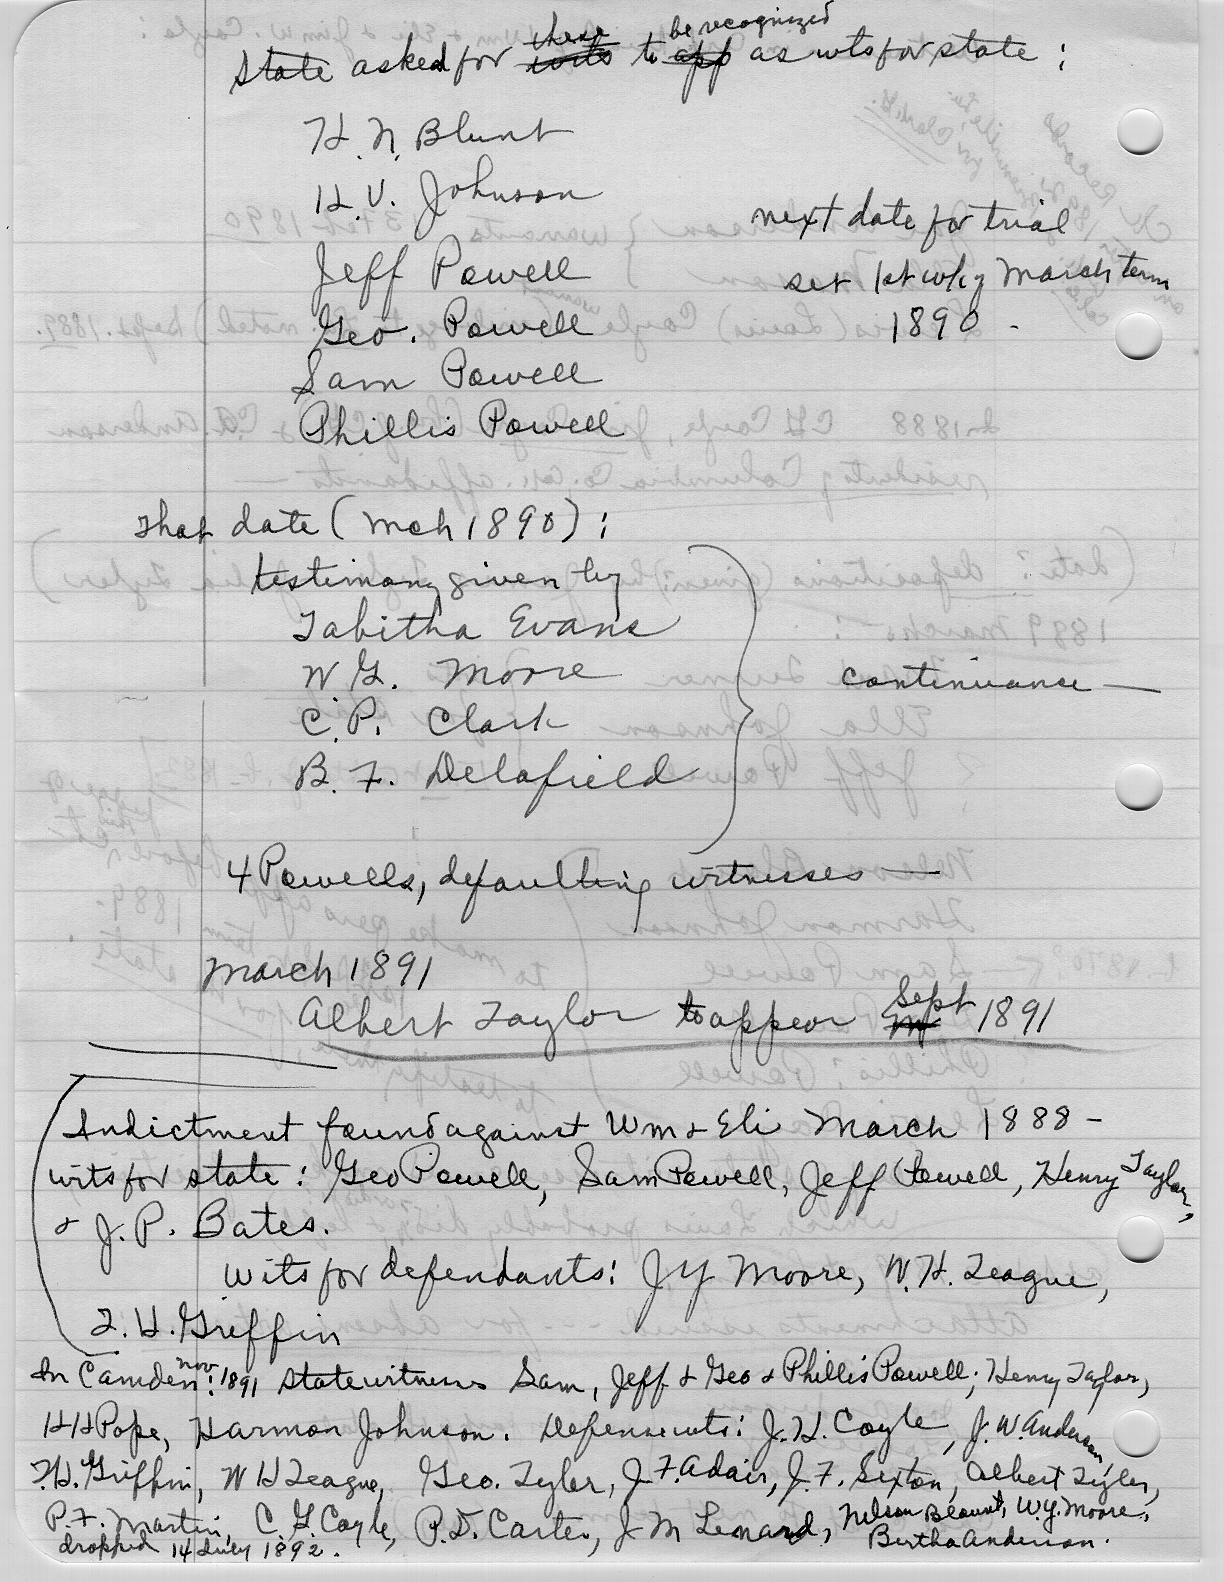 State asked for these wits to be recognized app as wts for state :
H. N. Blunt
H. V. Johnson
next date for trial
Jeff Powell
set 1st wk of March term
Geo. Powell
1890 -
Sam Powell
Phillis Powell
That date (Mch 1890) :
testimony given by
Tabitha Evans
W G. Moore
continuance —
C. P. Clark
B. F. Delafield
4 Powells, defaulting witnesses —
March 1891
Albert Taylor to appear Sept 1891
Indictment found against Wm + Eli March 1888 -
wits for state : Geo Powell, Sam Powell, Jeff Powell, Henry Taylor,
+ J. P. Bates.
Wits for defendants : J Y Moore, W. H. Teague,
T. H. Griffin
In Camden : Nov 1891 state witness Sam, Jeff + Geo + Phillis Powell; Henry Taylor,
H H Pope, Harmon Johnson. Defense wits : J. H. Cayle, J. W. Anderson,
T. H. Griffin, W H Teague, Geo. Tyler, J. F. Adair, J. F. Sexton, Albert Tyler,
P. F. Martin, C. G. Cayle, P. D. Carter, J M Lenard, Nelson Blount, W. Y. Moore,
Bertha Anderson.
dropped 14 July 1892.